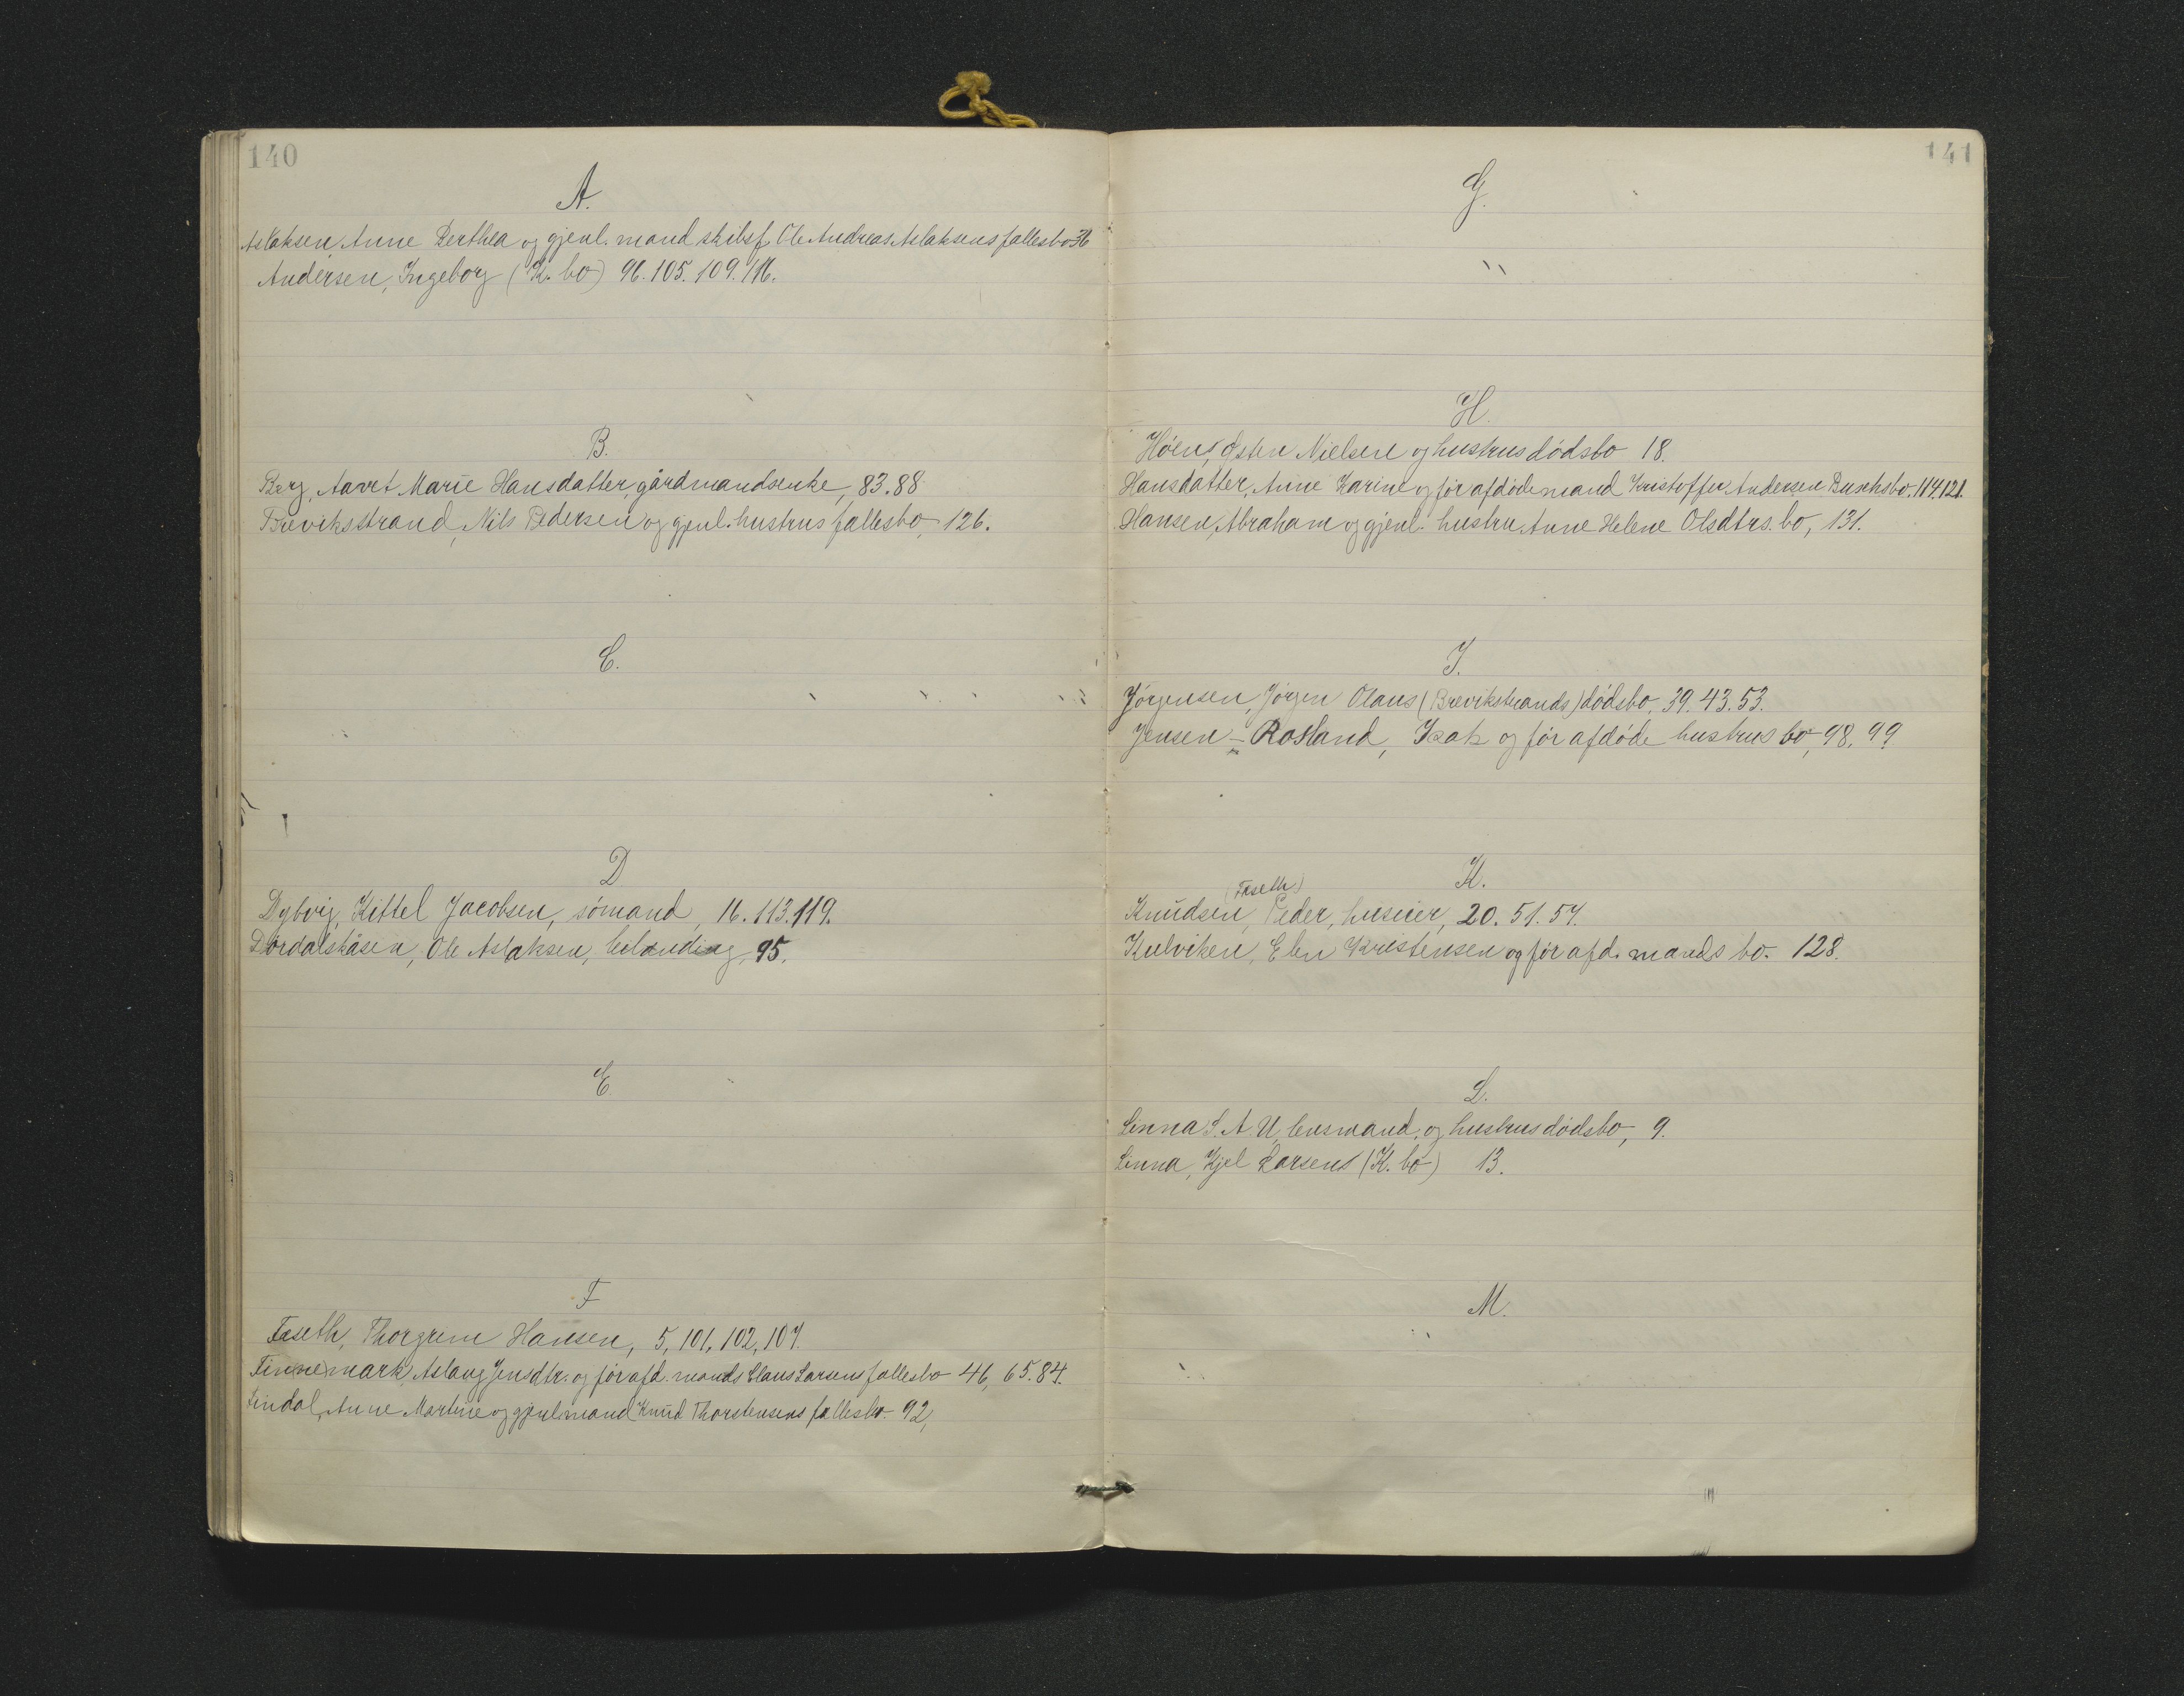 140
A.
Aslaksen, Anne Berthea og gjenl. mand skibsf. Ole Andreas Aslaksens fallesbo 36
Andersen, Ingeborg (K. bo) 96. 105. 109. 116.
B.
Berg, Aavet Marie Hansdatter, gårdmandsenke, 83. 88
Brevikstrand, Nils Pedersen og gjenl. hustrus fallesbo, 126.
C.
D
Dybvig, Kittel Jacobsen, sömand, 16. 113. 119.
Dördalsåsen, Ole Aslaksen, 95.
E
F
Foseth, Thorgrim Hansen, 5, 101, 102, 107.
Finnemark, Aslaug Jensdtr. og för afd. mands Claus Larsens fallesbo 46, 65. 84.
Findal, Anne Martine og gjenl. mand Knud Thorstensens fallesbo. 92,
141
G.
H.
Höen, Østen Nielsen og hustrus dödsbo 18.
Hansdatter, Anne Karine og för afdöde mand Kristoffer Andersen Buschsbo, 114, 121.
Hansen, Abraham og gjenl. hustru Anne Helene Olsdtrs. bo, 131.
J.
Jörgensen, Jörgen Olaus (Brevikstrands) dödsbo, 39. 43. 53.
Jensen - Rosland, Isak og för afdöde hustrus bo, 98. 99
K.
(Foseth)
Knudsen, Peder, huseier, 20. 51. 54.
Kulviken, Elen Kristensen og för afd. mands bo. 128.
L.
Linna L. A. U. lensmand, og hustrus dödsbo, 9.
Linna, Kjel Larsens (K. bo) 13.
M.